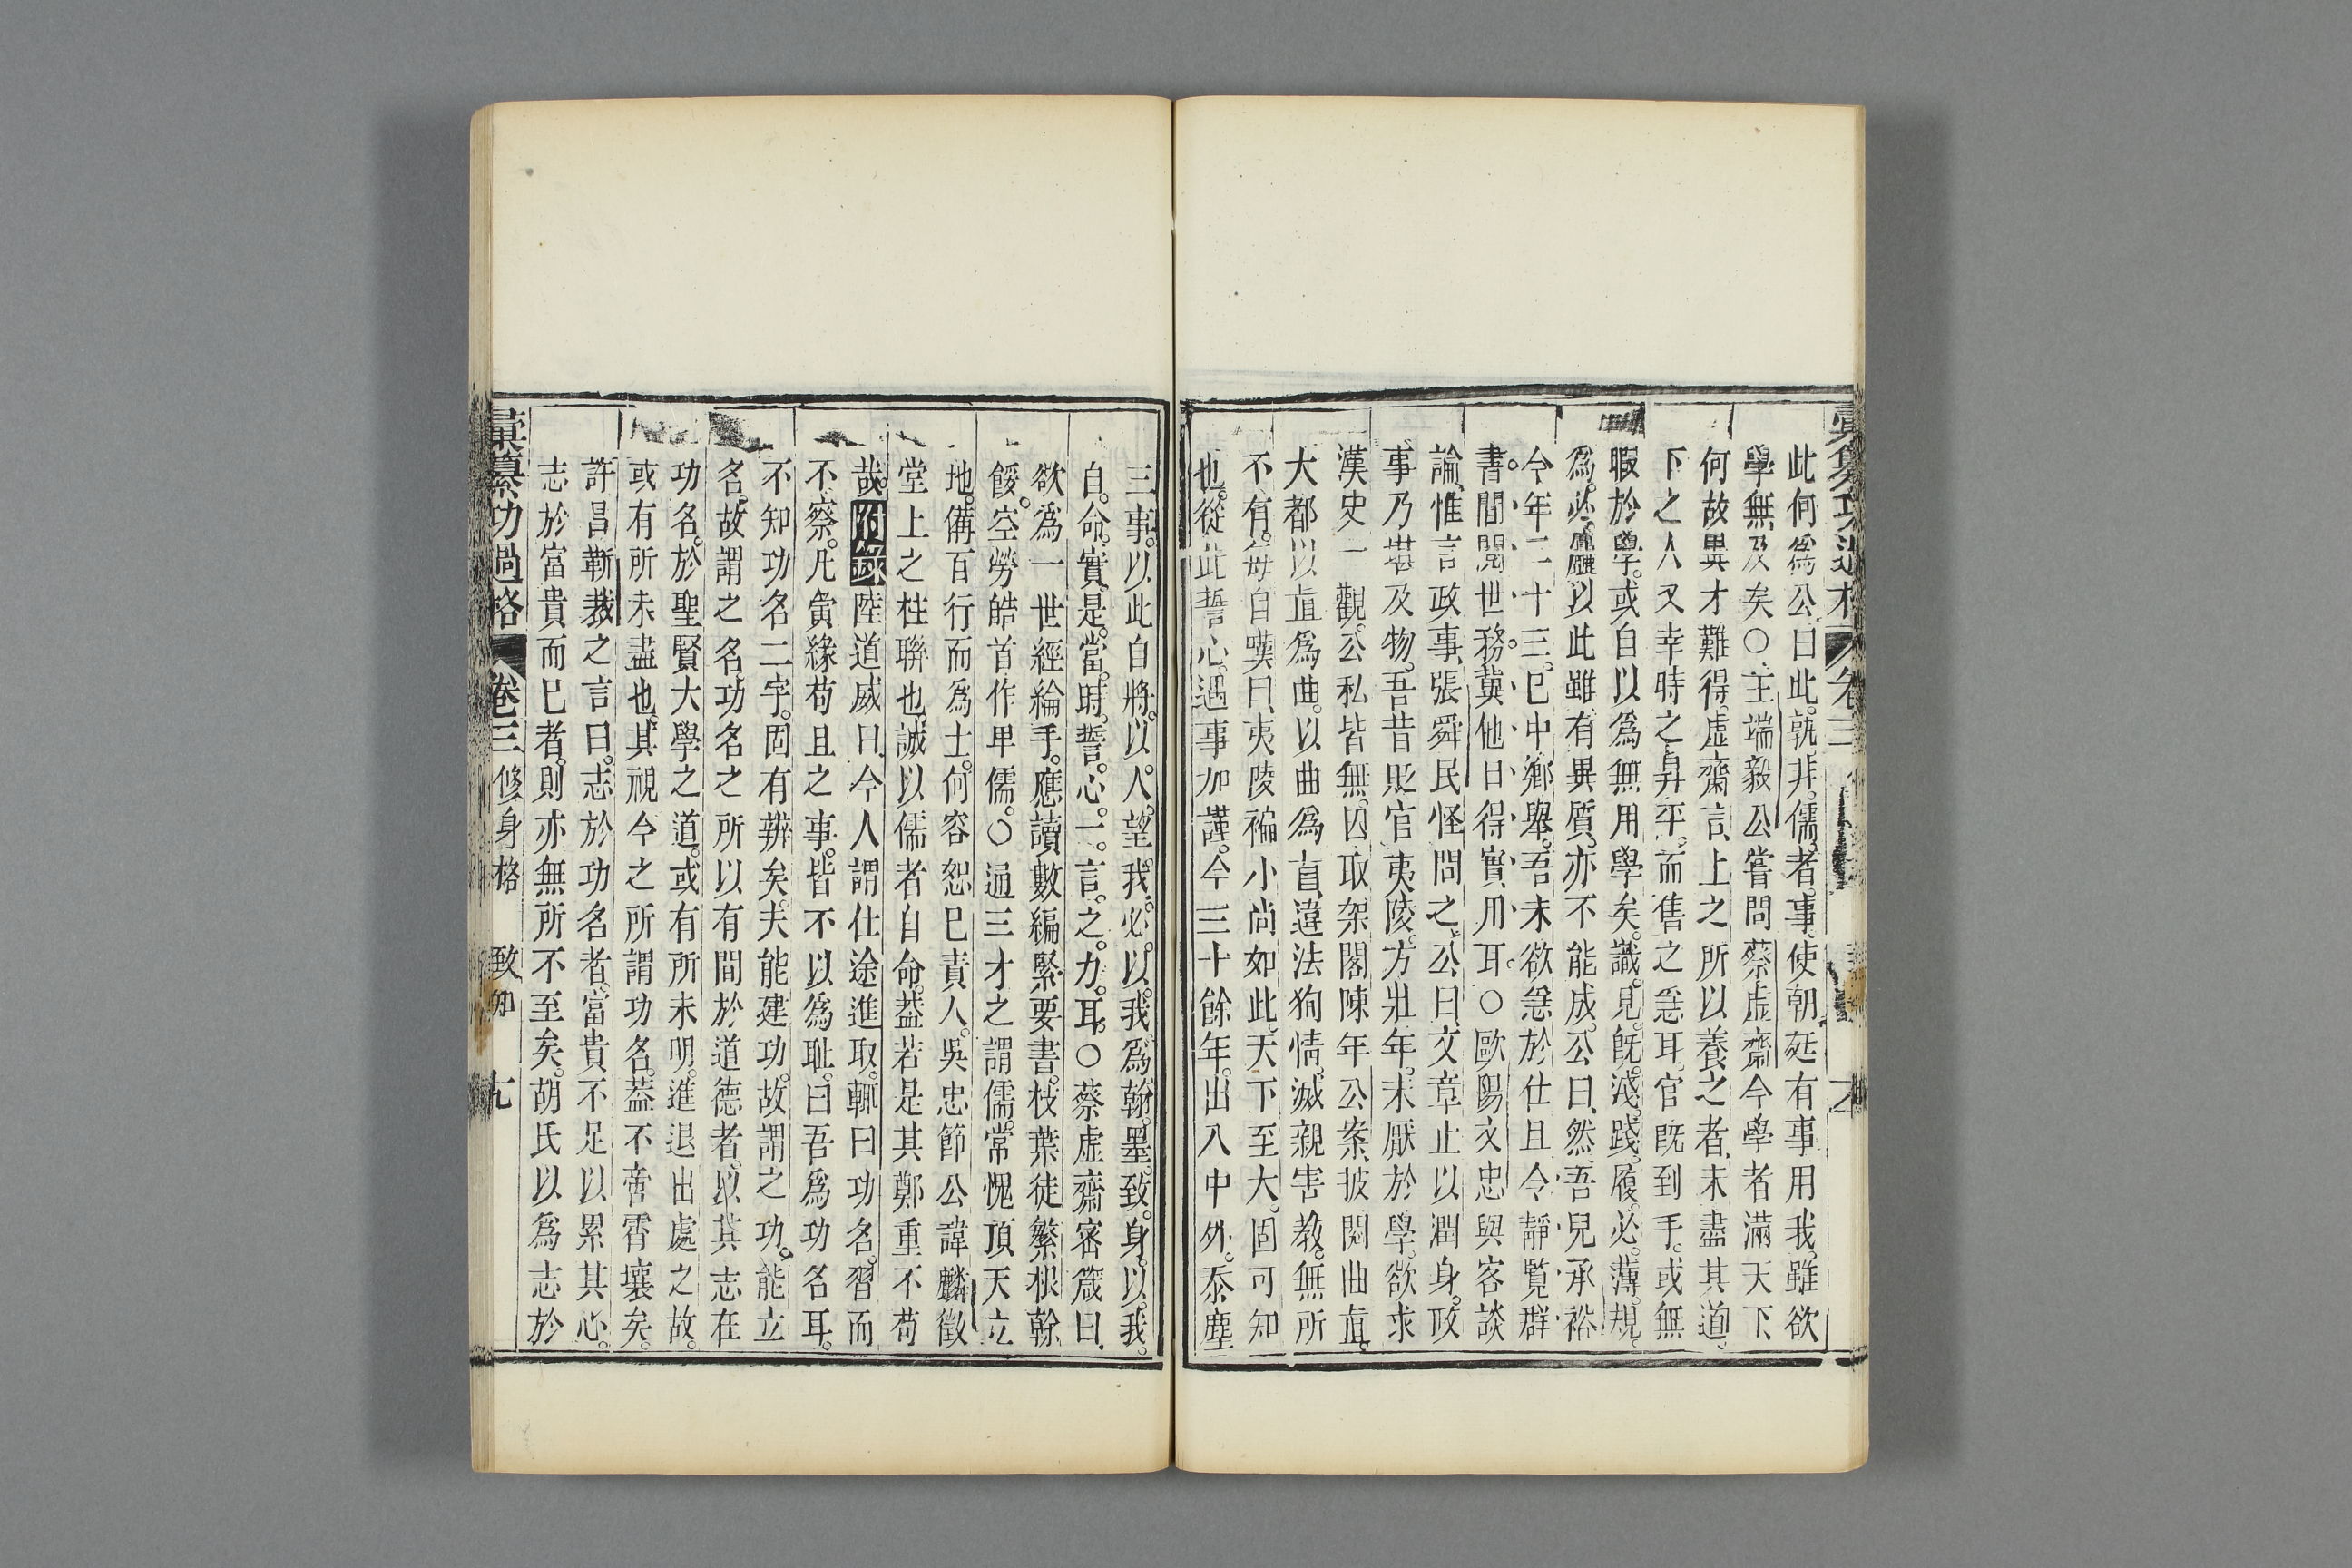 此何爲公曰此孰非儒者事使朝廷有事用我雖欲
學無及矣○主端毅公嘗問蔡虛齋今學者滿天下
何故異才難得虛齋言上之所以養之者未盡其道
下之人又幸時之昇平而售之急耳官旣到手或無
暇於學或自以爲無用學矣識見旣淺踐履必薄規
爲必麤以此雖有異質亦不能成公曰然吾兒承裕
今年二十三已中鄉舉吾未欲急於仕且令靜覧群
書間閱世務冀他日得實用耳○歐陽文忠與客談
論惟言政事張舜民怪問之公曰文章止以潤身政
事乃堪及物吾昔貶官夷陵方壯年未厭於學欲求
漢史一觀公私皆無因取架閣陳年公案披閱曲直
大都以直爲曲以曲爲直違法狥情滅親害教無所
不有每自嘆曰夷陵褊小尚如此天下至大固可知
也從此誓心遇事加謹今三十餘年出入中外忝塵
三事以此自將以人望我必以我爲翰墨致身以我
自命實是當時誓心一言之力耳○蔡虛齋密箴曰
欲爲一世經綸手應讀數編緊要書枝葉徒繁根幹
餒空勞皓首作甲儒○通三才之謂儒常愧頂天立
地備百行而爲士何容恕已責人吳忠節公諱麟徵
堂上之柱聯也誠以儒者自命葢若是其鄭重不苟
哉附錄陸道威曰今人謂仕途進取輒曰功名習而
不察凡夤緣苟且之事皆不以爲耻曰吾爲功名耳
不知功名二字固有辨矣夫能建功故謂之功能立
名故謂之名功名之所以有間於道德者以其志在
功名於聖賢大學之道或有所未明進退出處之故
或有所未盡也其視今之所謂功名葢不啻霄壤矣
許昌靳裁之言曰志於功名者富貴不足以累其心
志於富貴而已者則亦無所不至矣胡氏以爲志於
彙纂功過格 卷三 修身格 致知 九